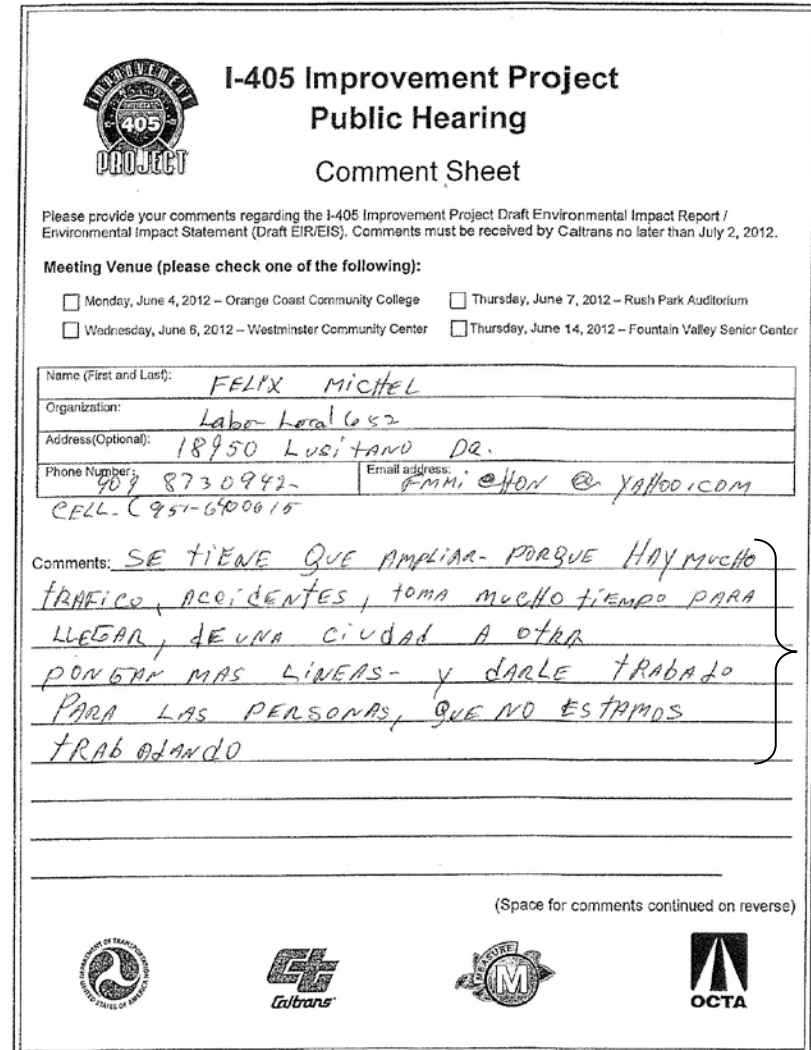 IMPROVEMENT
405
PROJECT
I-405 Improvement Project
Public Hearing
Comment Sheet
Please provide your comments regarding the I-405 Improvement Project Draft Environmental Impact Report /
Environmental Impact Statement (Draft EIR/EIS). Comments must be received by Caltrans no later than July 2, 2012.
Meeting Venue (please check one of the following):
Monday, June 4, 2012 – Orange Coast Community College Thursday, June 7, 2012 – Rush Park Auditorium
Wednesday, June 6, 2012 – Westminster Community Center Thursday, June 14, 2012 – Fountain Valley Senior Center
Name (First and Last): FELIX MICHEL
Organization: Labor Local 652
Address(Optional): 18950 LUSITANO DR.
Phone Number: 909 8730942- Email address: @ YAHOO.COM
CELL-(951-6400615
Comments: SE tiENE QUE AMPLIAR- PORQUE HAY MUCHO
tRAFICO, ACCIDENTES, tOMA MUCHO tiEMPO PARA
LLEGAR, dE UNA CiUdAd A OtRA
PONGAN MAS LiNEAS- Y dARLE tRABAJO
PARA LAS PERSONAS, QUE NO ESTAMOS
tRABAJANdO
(Space for comments continued on reverse)
DEPARTMENT OF TRANSPORTATION
UNITED STATES OF AMERICA
Caltrans
MEASURE
M
OCTA